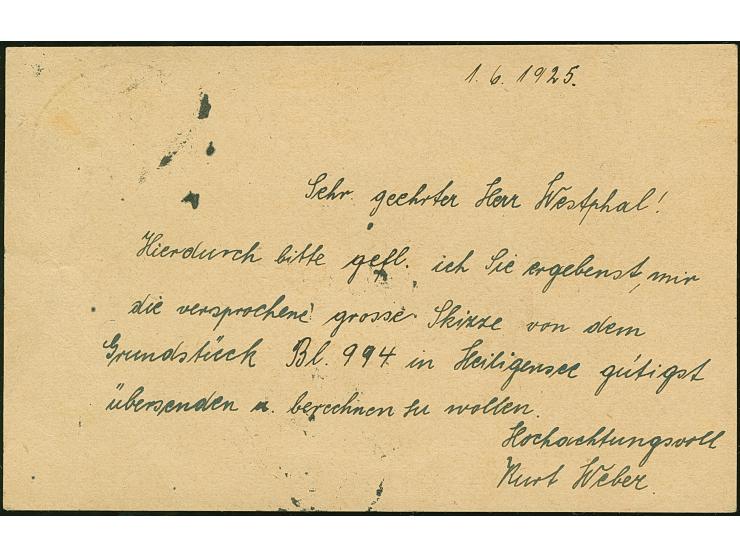 1. 6. 1925.
Sehr geehrter Herr Westphal!
Hierdurch bitte gefl. ich Sie ergebenst, mir
die versprochene grosse Skizze von dem
Grundstück Bl. 994 in Heiligensee gütigst
übersenden u. berechnen zu wollen.
Hochachtungsvoll
Kurt Weber.